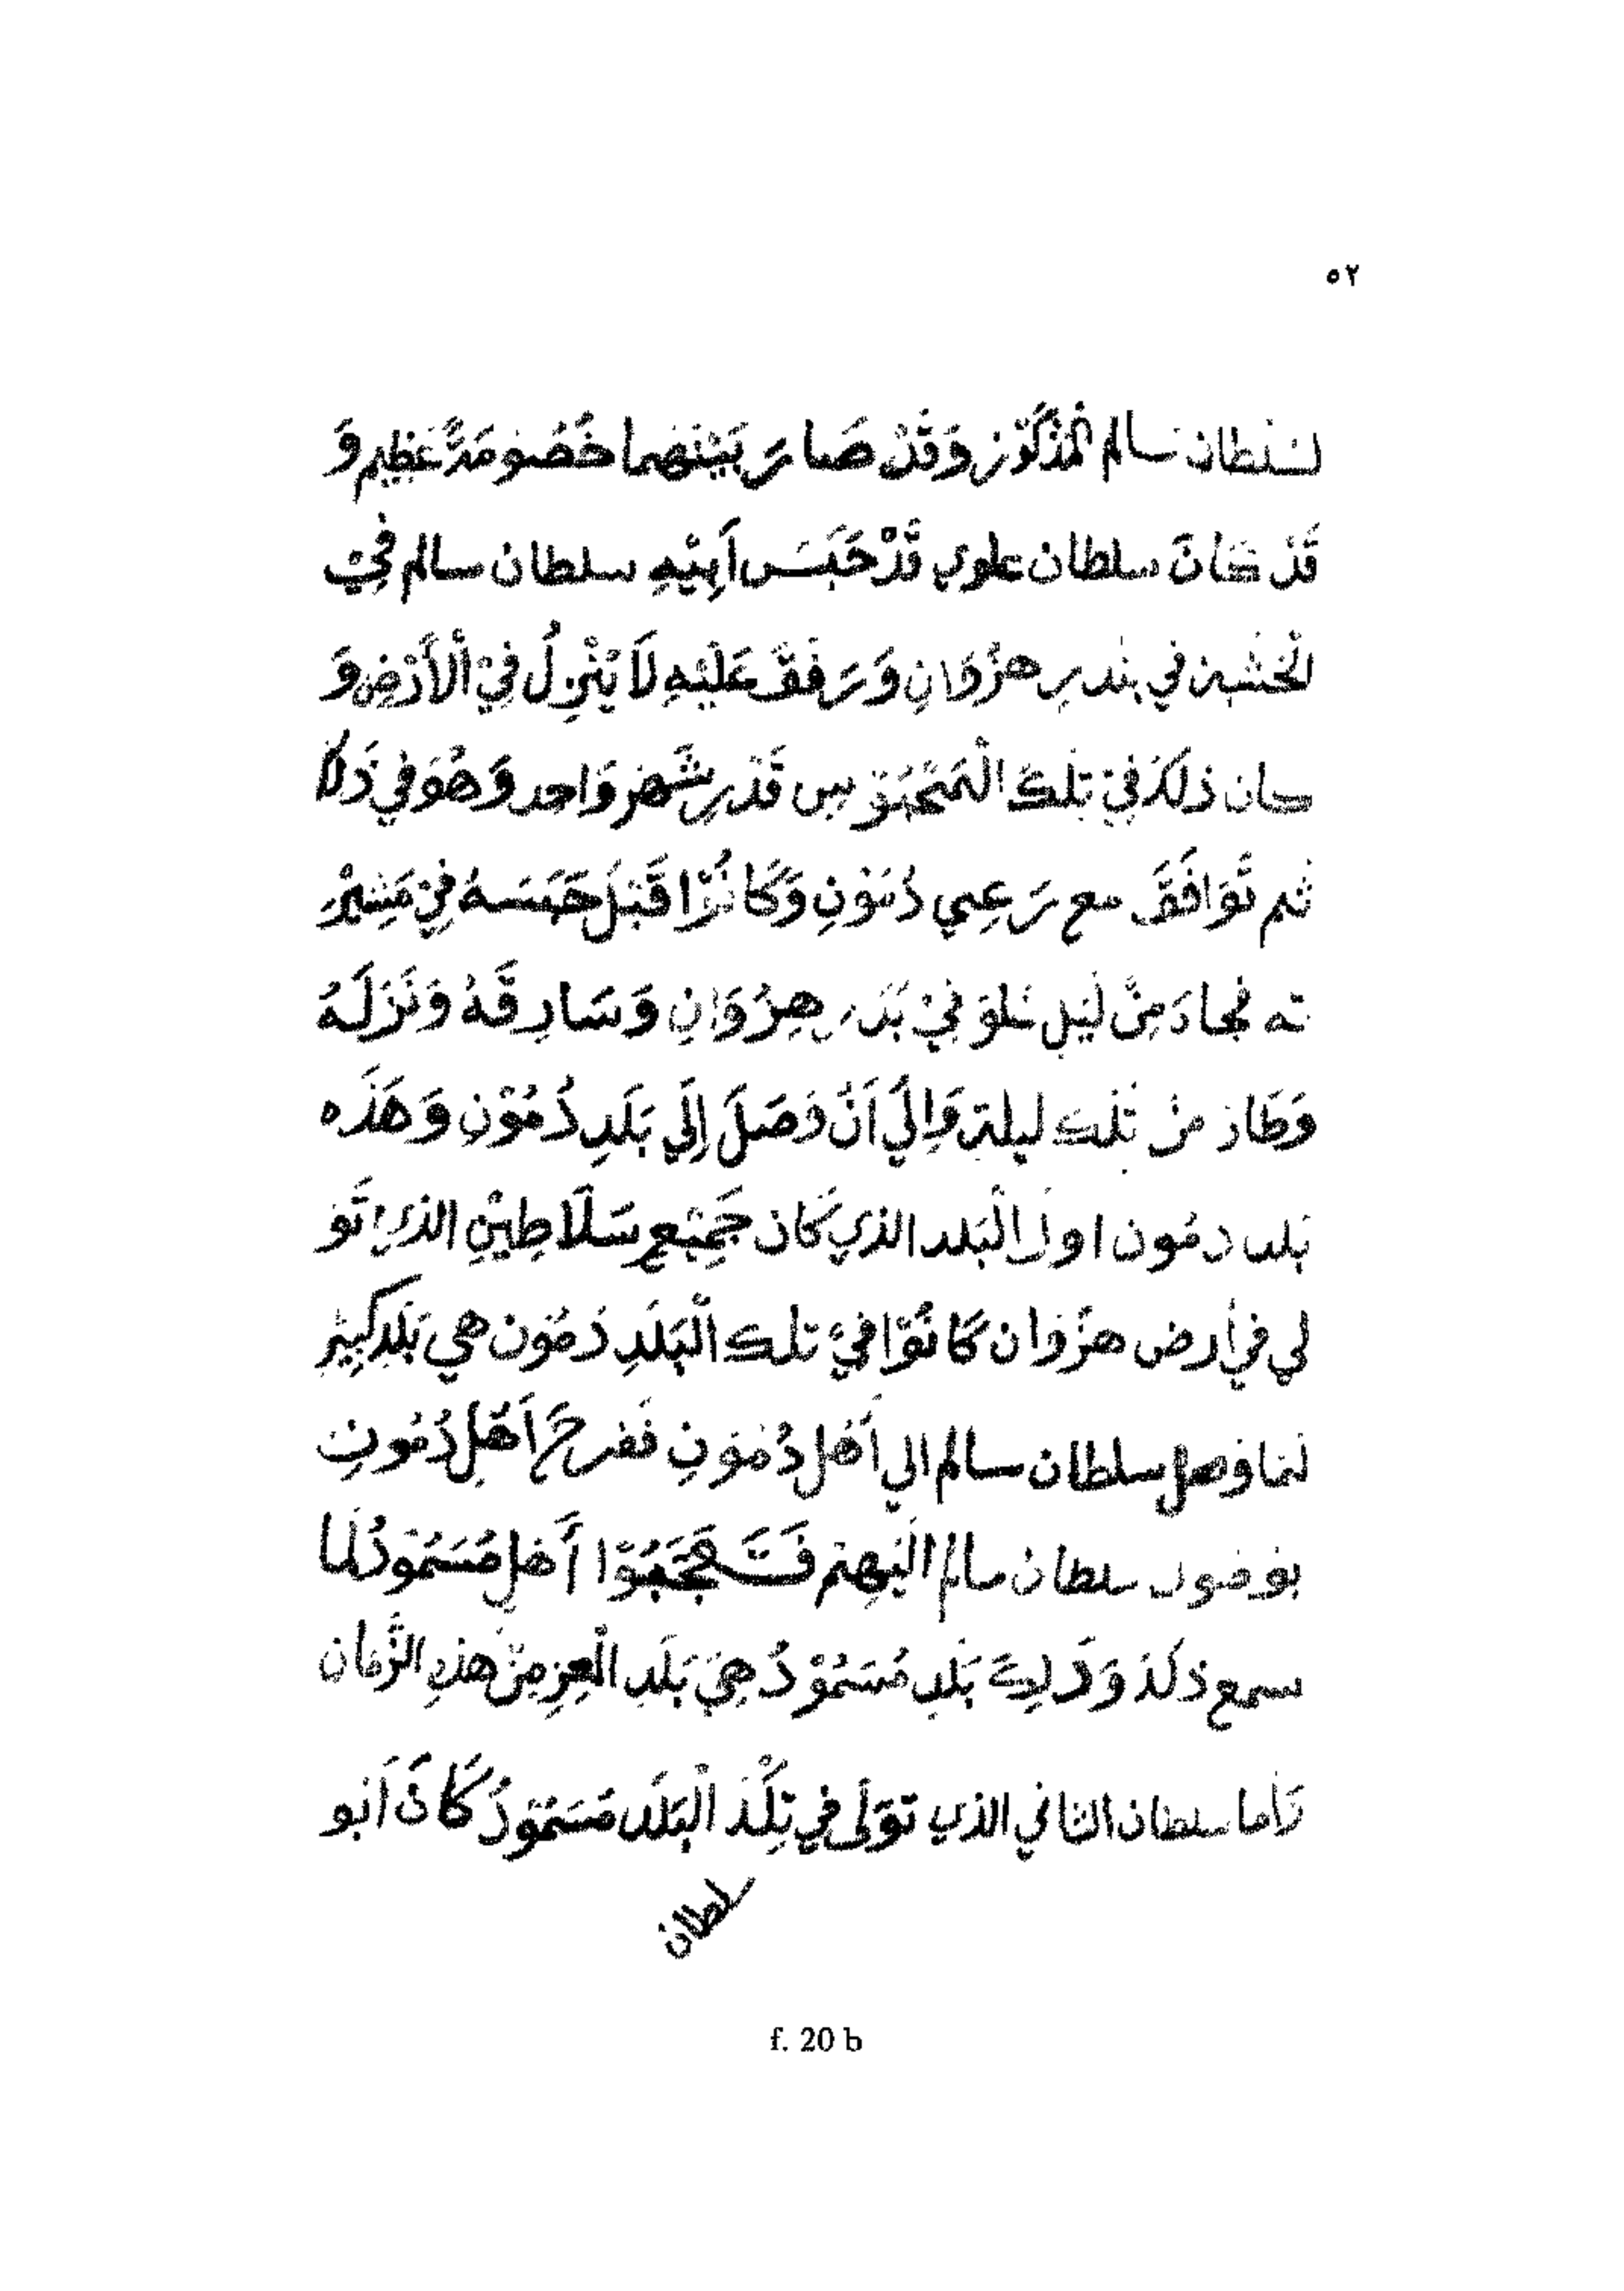 ٥٢
لسلطان سالم المَذْكُوْر وَقَدْ صَارَ بَيْنَهُمَا خَصُومَةٌ عَظِيم وَ
قَدْ كَانَ سلطان علوي قَدْ حَبَسَ اَبِيْهِ سلطان سالم فِيْ
الْخَشَبِ في بندرِ هِزْوَانِ وَرَفَقَ عَلَيْهِ لَا يَنْزِلُ فِيْ الْأَرْضِ وَ
كان ذلكَ فِيْ تِلْكَ قَدْرِ شَهْرِ وَاحِد وَهُوَ في
ثم تَوَافَقَ مع رَعِيي دُمُوْنِ وَكَانُوْا قَبْلَ خَمَسَهُ فِيْ مَشِيْرِ
ته فجاءَ مِنْ لَيْلِ فِيْ هِزْوَانِ وَسَارِقَهُ وَنَزَلَهُ
وَطَارَ مِنْ تَلْكَ ليلة وَالِيْ اَنْ وَصَلَ اِلَي بَلَدِ دُمُوْنِ وَهَذَه
بَلد دمُون اولُ الْبَلد الذي كَانَ جَمِيْعِ سَلَاطِيْنِ الذي تَوَ
لي في أرض هِزْوَان كَانُوْا فِيْ تلك الْبَلَدِ دُمُوْن هي بَلَدِ كَبِيْرِ
لما وصل سلطان سالم الي أَهْل دُمُوْنِ فَفرحَ اَهْلِ دُمُونِ
بوصول سلطان سالم الَيْهِمْ فَتَعَجَّبُوْا أَهْلِ مُسَمُوْدُ لَمَا
سمع ذلكَ وَذَلِكَ بَلَدِ مُسَمُوْدُ هِيَ بَلَدِ الْعِزِ مِنْ هذِهِ الزَّمَان
وَأما سلطان الثاني الذي تَوَلَّى فِي تِلْكَ الْبَلَد مُسَمُوْدُ كَانَ اَبُو
سلطان
f. 20 b